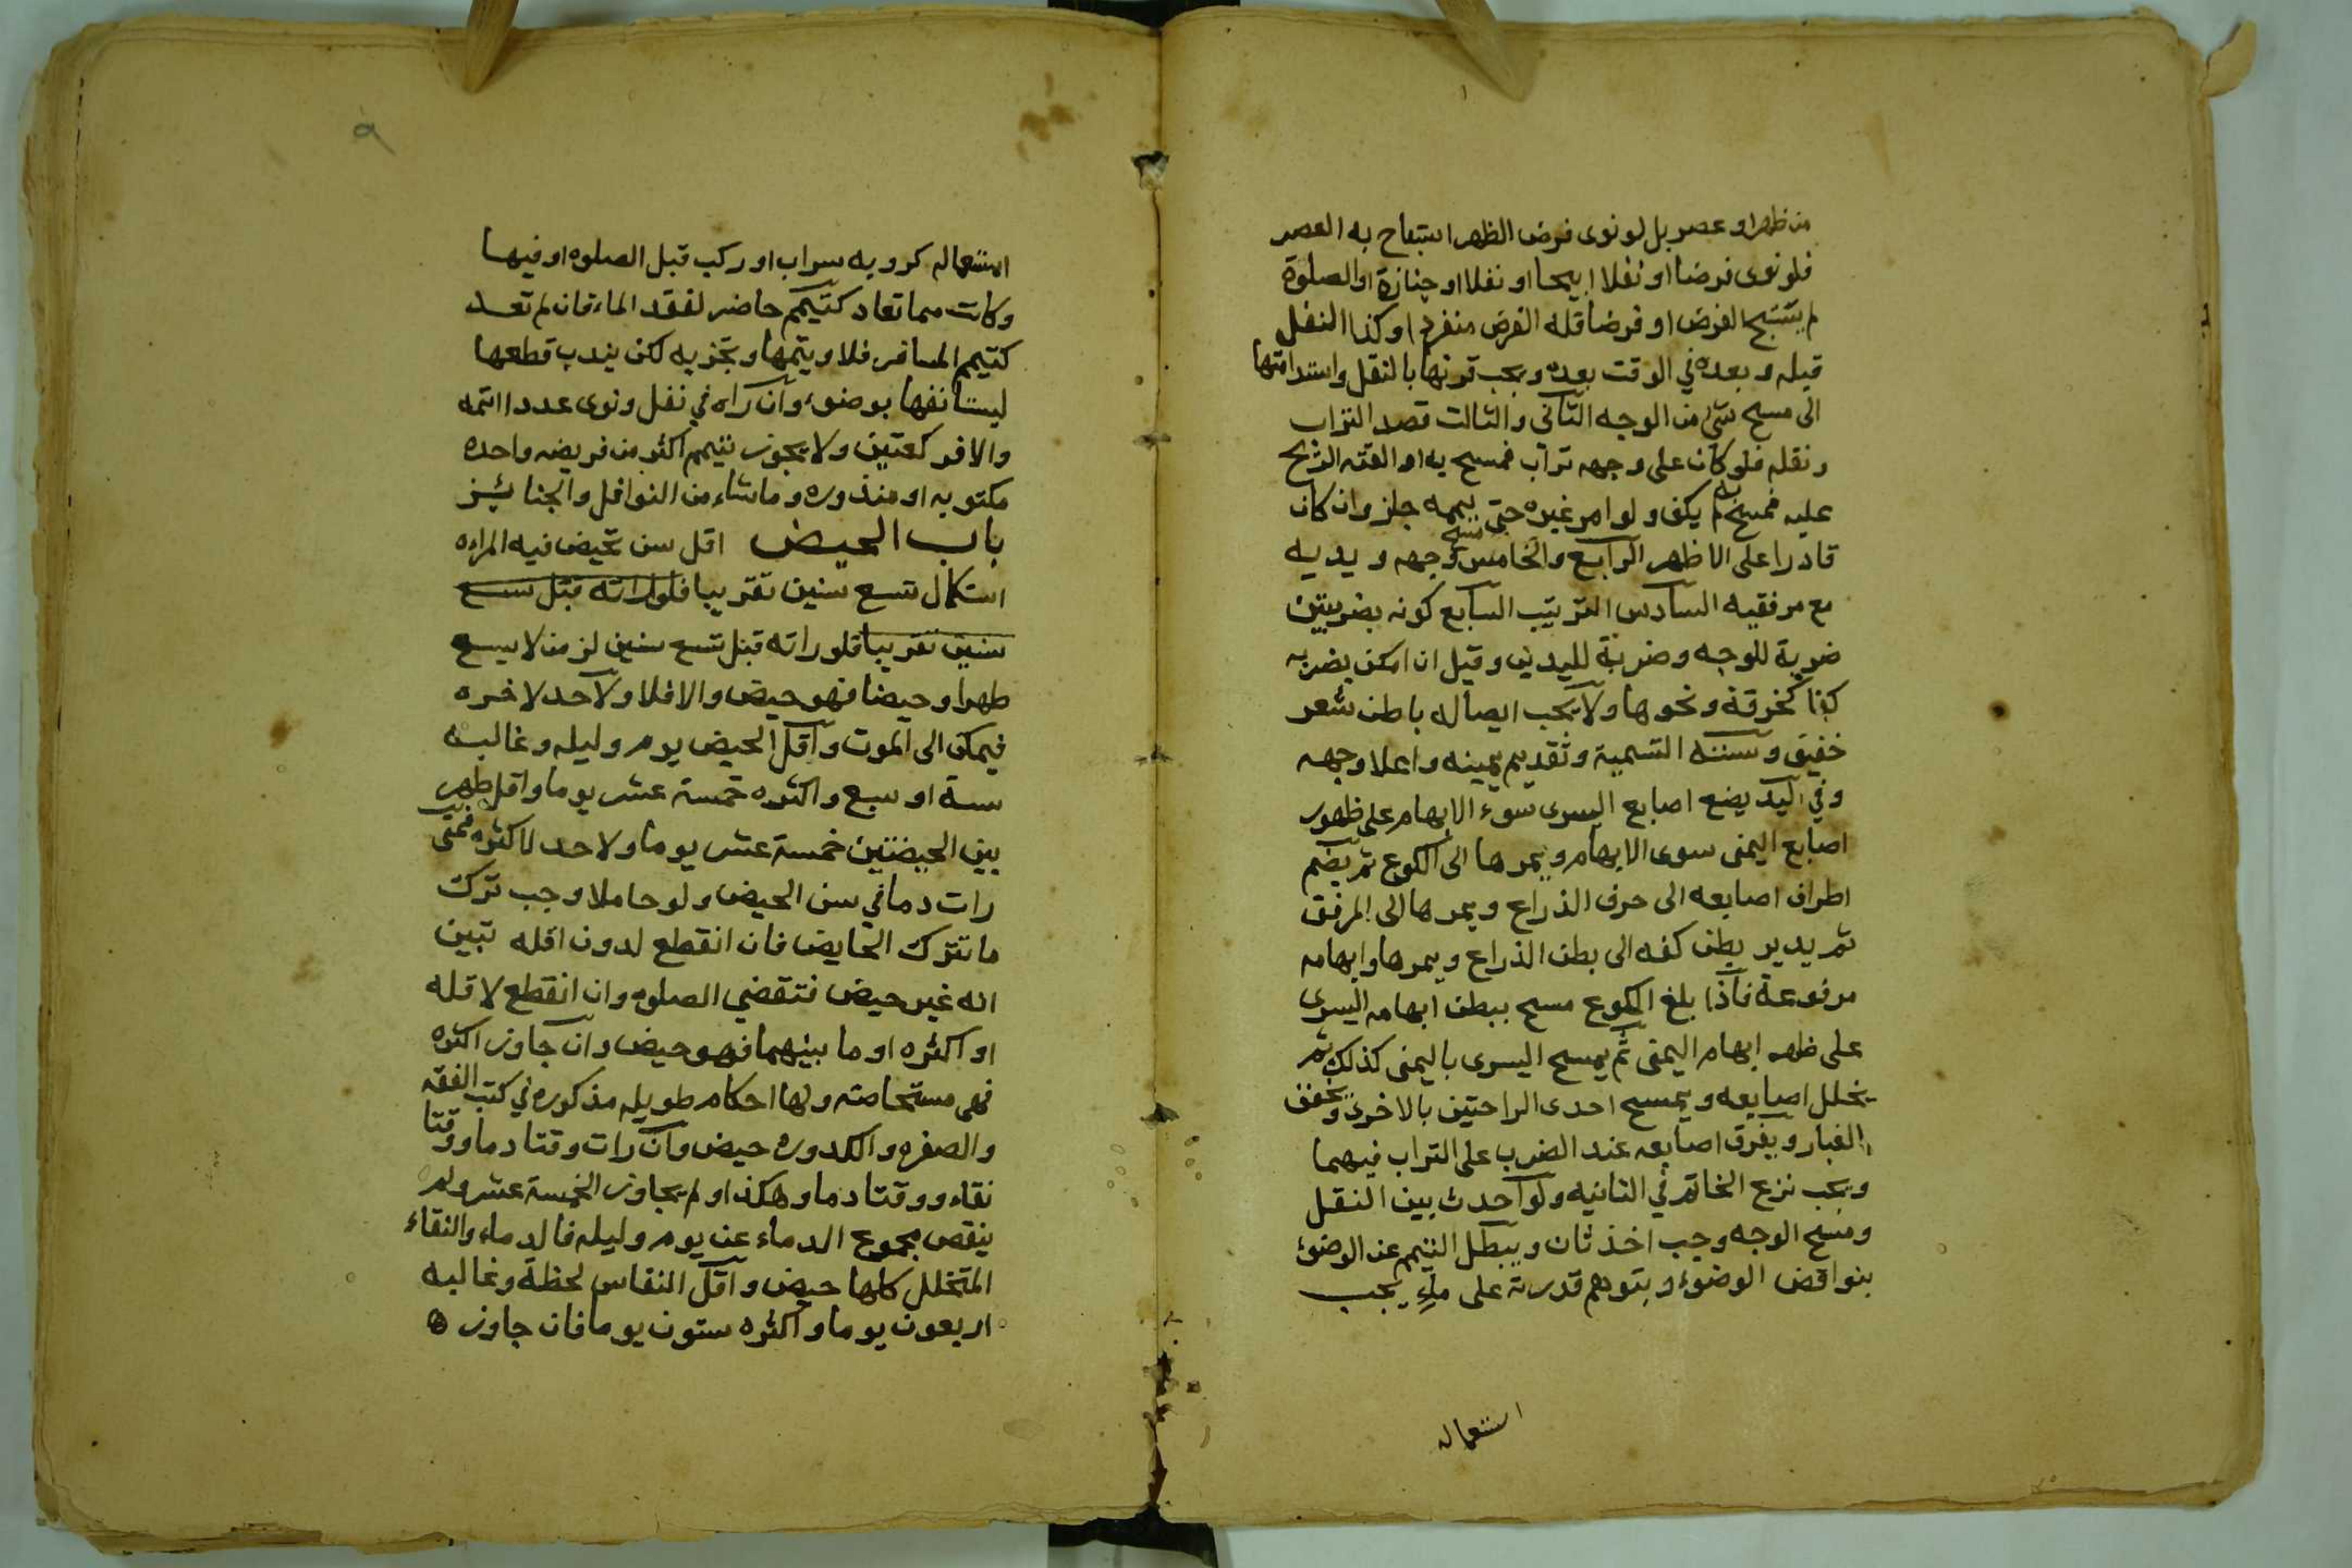 من ظهر او عصر بل لو نوى فرض الظهر استباح به العصر
فلو نوى فرضا او نفلا ابيحا او نفلا او جنازة او الصلوة
لم يستبح الفرض او فرضا فله الفرض منفردا وكذا النفل
قبله وبعده في الوقت بعده ويجب قرنها بالنقل واستدامتها
الى مسح شي من الوجه الثاني والثالث قصد التراب
ونقله فلو كان على وجهه تراب فمسح به او القته الريح
عليه فمسح به لم يكف ولو امر غيره حتى ييممه جاز وان كان
قادرا على الاظهر الرابع والخامس مسح وجهه ويديه
مع مرفقيه السادس الترتيب السابع كونه بضربتين
ضربة للوجه وضربة لليدين وقيل ان امكن بضربه
كفا كخرقة ونحوها ولا يجب ايصاله باطن شعر
خفيف وسننه التسمية وتقديم يمينه واعلا وجهه
وفي اليد يضع اصابع اليسرى سوء الابهام على ظهور
اصابع اليمنى سوى الابهام ويمرها الى الكوع ثم يضم
اطراف اصابعه الى حرف الذراع ويمرها الى المرفق
ثم يدير بطن كفه الى بطن الذراع ويمرها وابهامه
مرفوعة فاذا بلغ الكوع مسح ببطن ابهامه اليسرى
على ظهر ابهام اليمنى ثم يمسح اليسرى باليمنى كذلك ثم
يخلل اصابعه ويمسح احدى الراحتين بالاخرى ويخفف
الغبار ويفرق اصابعه عند الضرب على التراب فيهما
ويجب نزع الخاتم في الثانيه ولو احدث بين النقل
ومسح الوجه وجب اخذ ثان ويبطل التيمم عن الوضوء
بنواقض الوضوء وبتوهم قدرته على ماء يجب
استعماله
استعماله كروية سراب او ركب قبل الصلوه او فيها
وكانت مما تعاد كتيمم حاضر لفقد الماء فان لم تعد
كتيمم المسافر فلا ويتمها وتجزيه لكن يندب قطعها
ليستانفها بوضوء وان راه في نفل ونوى عددا اتمه
والا فركعتين ولا يجوز بتيمم اكثر من فريضه واحده
مكتوبه او منذوره وما شاء من النوافل والجنائيز
باب الحيض اقل سن تحيض فيه المراه
استكمال تسع سنين تقريبا فلو راته قبل تسع
سنين تقريبا فلو راته قبل تسع سنين لزمن لا يسع
طهرا وحيضا فهو حيض والا فلا ولا حد لاخره
فيمكن الى الموت واقل الحيض يوم وليله وغالبه
ستة او سبع واكثره خمسة عشر يوما واقل طهر
بين الحيضتين خمسة عشر يوما ولا حد لاكثره فمتى
رات دما في سن الحيض ولو حاملا وجب ترك
ما تترك الحايض فان انقطع لدون اقله تبين
انه غير حيض فتقضي الصلوه وان انقطع لاقله
او اكثره او ما بينهما فهو حيض وان جاوز اكثره
فهي مستحاضه ولها احكام طويله مذكوره في كتب الفقه
والصفره والكدوره حيض وان رات وقتا دما ووقتا
نقاء ووقتا دما وهكذا ولم يجاوز الخمسة عشر ولم
ينقص مجموع الدماء عن يوم وليله فالدماء والنقاء
المتخلل كلها حيض واقل النفاس لحظة وغالبه
اربعون يوما واكثره ستون يوما فان جاوزه